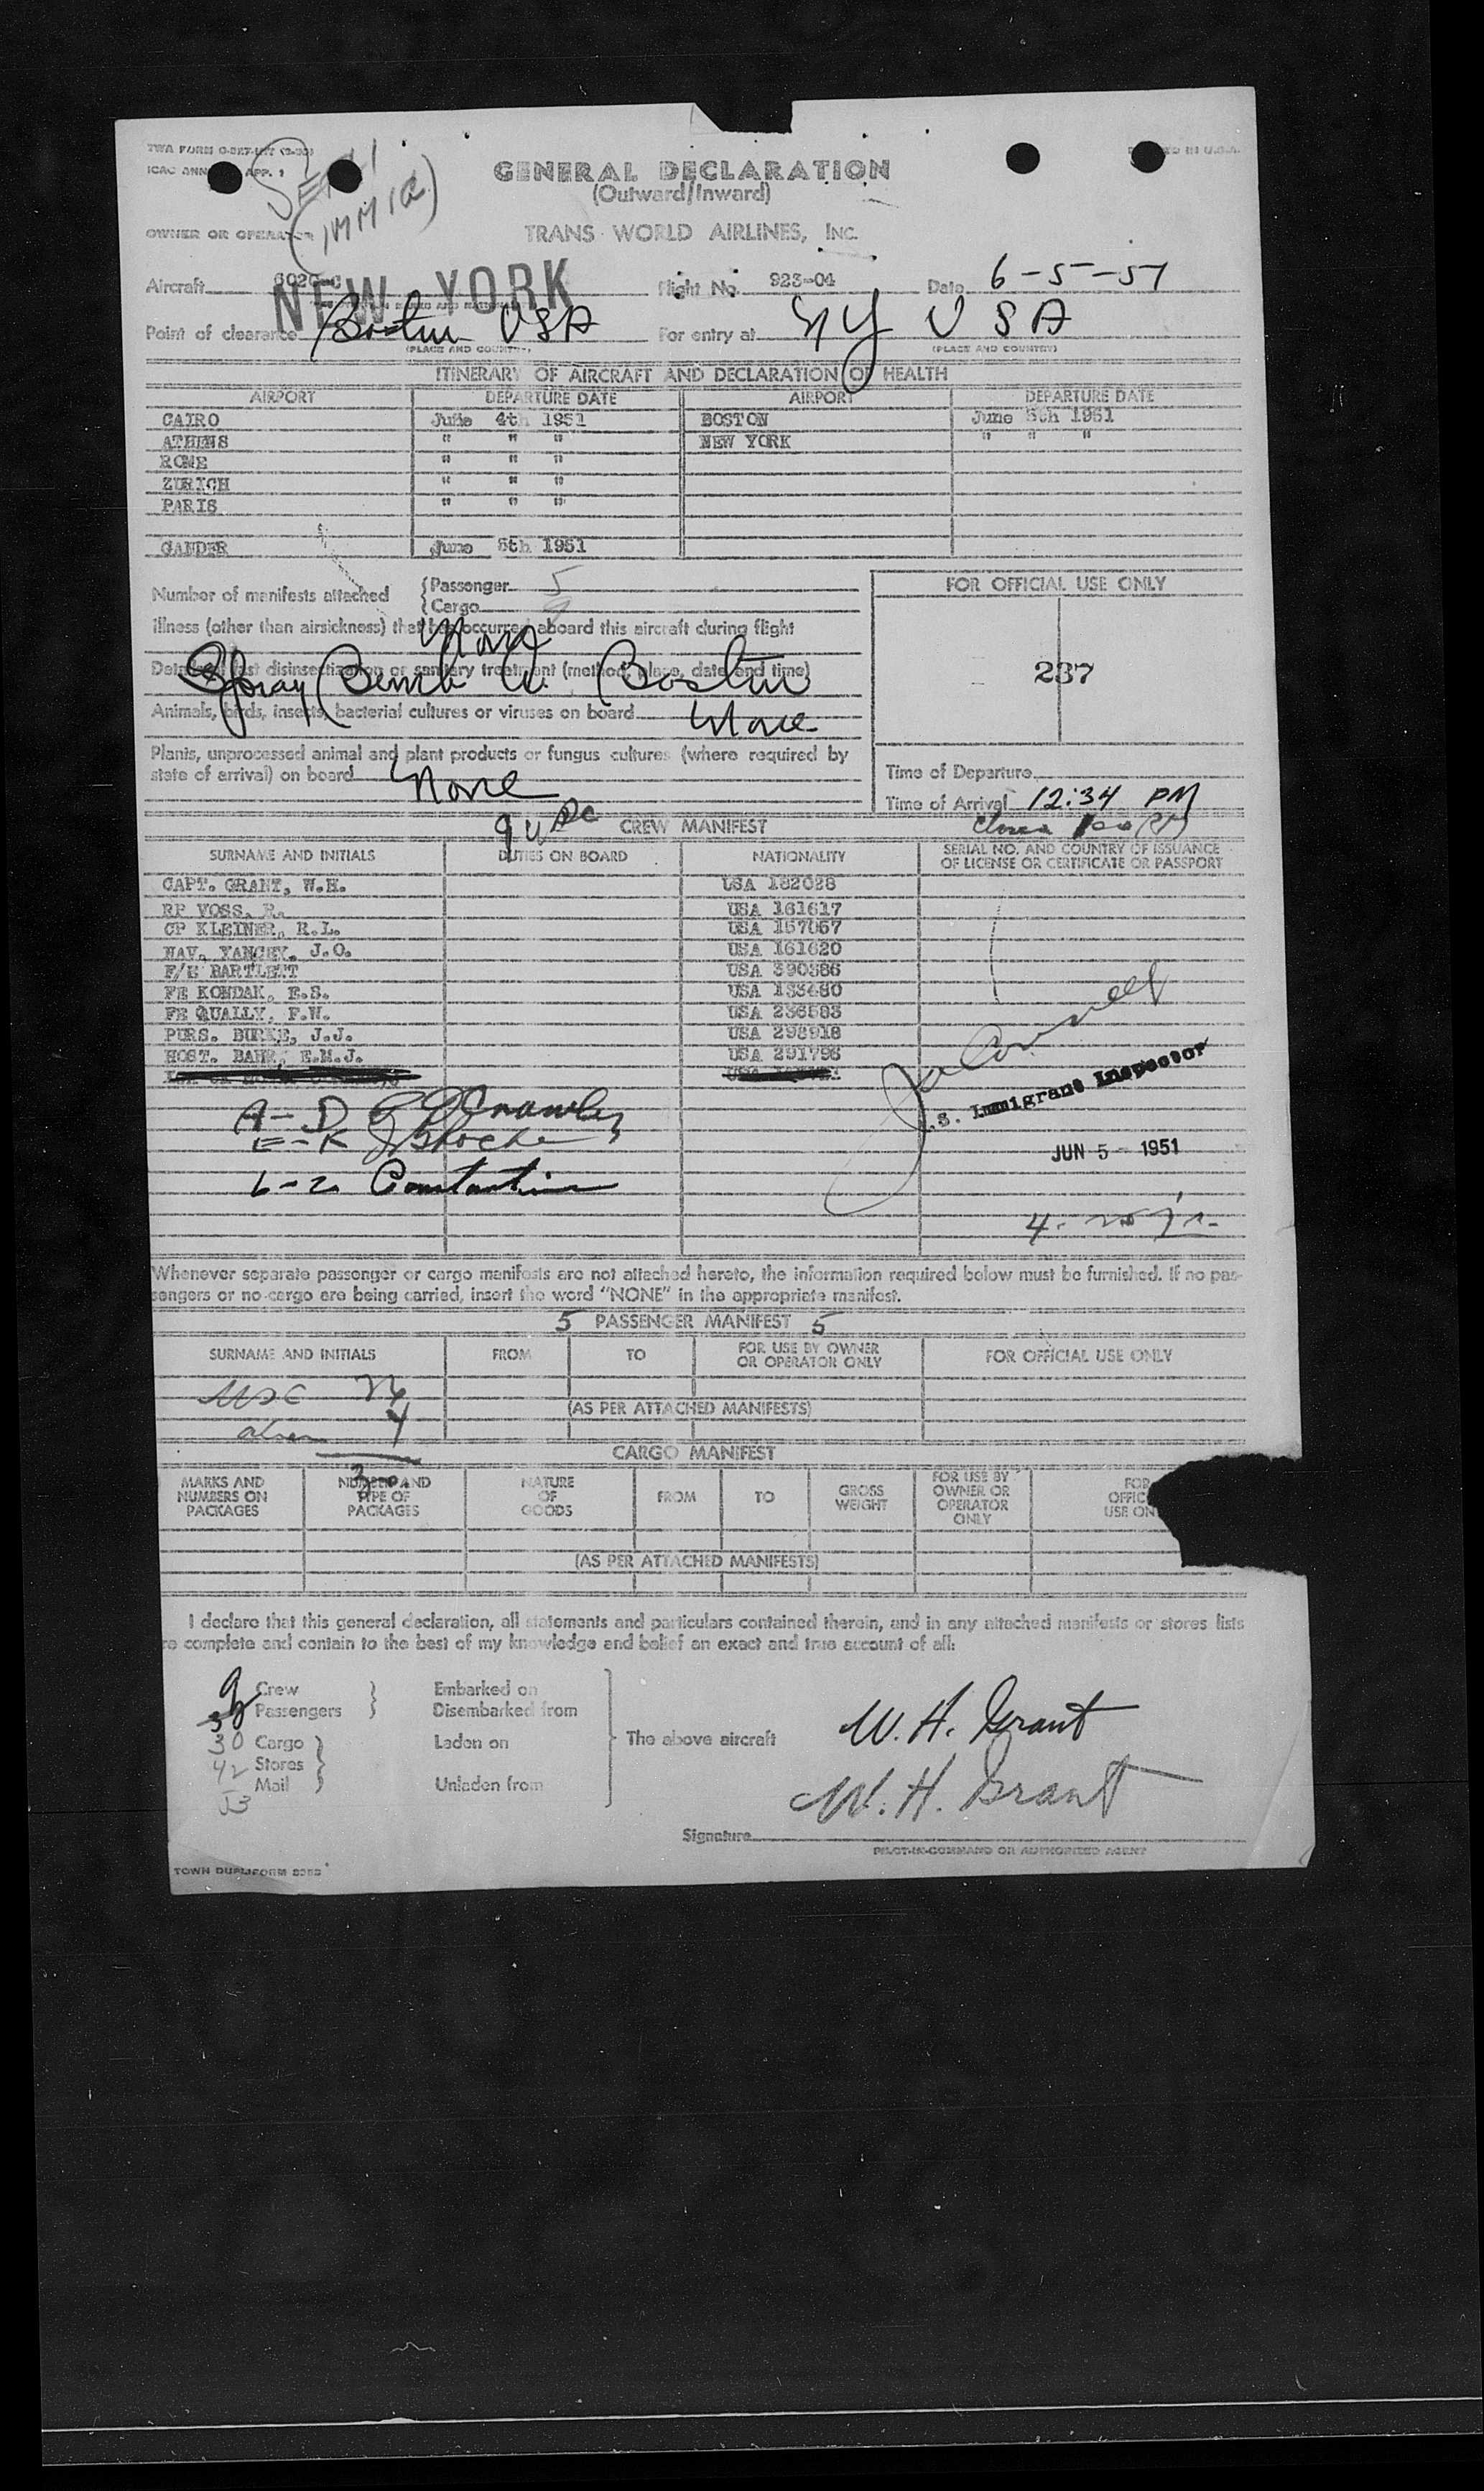 TWA FORM
ICAO ANN APP. 1
GENERAL DECLARATION
(Outward/Inward)
OWNER OR OPERATOR TRANS WORLD AIRLINES, INC.
NEW YORK
Aircraft 6020-C Flight No. 923-04 Date 6-5-51
Point of clearance Boston USA For entry at NY USA
(PLACE AND COUNTRY) (PLACE AND COUNTRY)
ITINERARY OF AIRCRAFT AND DECLARATION OF HEALTH
AIRPORT DEPARTURE DATE AIRPORT DEPARTURE DATE
CAIRO June 4th 1951 BOSTON June 5th 1951
ATHENS " " " NEW YORK " " "
ROME " " "
ZURICH " " "
PARIS " " "
GANDER June 5th 1951
Number of manifests attached
Passenger 5
Cargo
FOR OFFICIAL USE ONLY
Illness (other than airsickness) that has occurred aboard this aircraft during flight
None
Details of last disinsectization or sanitary treatment (method, place, date and time)
Spray Bomb Boston
237
Animals, birds, insects, bacterial cultures or viruses on board None
Plants, unprocessed animal and plant products or fungus cultures (where required by
state of arrival) on board None
Time of Departure
Time of Arrival 12:34 PM
CREW MANIFEST
SURNAME AND INITIALS DUTIES ON BOARD NATIONALITY SERIAL NO. AND COUNTRY OF ISSUANCE OF LICENSE OR CERTIFICATE OR PASSPORT
CAPT. GRANT, W.H. USA 182028
RP VOSS, R. USA 161617
CP KLEINER, R.L. USA 157057
NAV. YANCEY, J.O. USA 161620
F/E BARTLETT USA 390386
FE KONDAK, E.S. USA 133480
FE QUALLY, F.W. USA 236503
PURS. BURKE, J.J. USA 298918
HOST. BAHR, E.M.J. USA 291796
A-D Crawley
E-K
L-Z Constantine
S. Immigrant Inspector
JUN 5 - 1951
Whenever separate passenger or cargo manifests are not attached hereto, the information required below must be furnished. If no pas-
sengers or no cargo are being carried, insert the word "NONE" in the appropriate manifest.
5 PASSENGER MANIFEST 5
SURNAME AND INITIALS FROM TO FOR USE BY OWNER OR OPERATOR ONLY FOR OFFICIAL USE ONLY
USC 26
(AS PER ATTACHED MANIFESTS)
alien 4
30
CARGO MANIFEST
MARKS AND NUMBERS ON PACKAGES NUMBER AND TYPE OF PACKAGES NATURE OF GOODS FROM TO GROSS WEIGHT FOR USE BY OWNER OR OPERATOR ONLY FOR OFFIC USE ON
(AS PER ATTACHED MANIFESTS)
I declare that this general declaration, all statements and particulars contained therein, and in any attached manifests or stores lists
re complete and contain to the best of my knowledge and belief an exact and true account of all:
9 Crew Embarked on
Passengers Disembarked from
30 Cargo Laden on The above aircraft W. H. Grant
42 Stores
Mail Unladen from W. H. Grant
53
Signature
PILOT-IN-COMMAND OR AUTHORIZED AGENT
TOWN DUPLIFORM